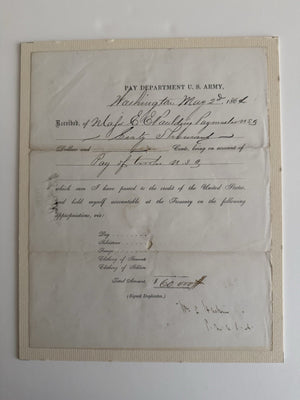 PAY DEPARTMENT U. S. ARMY,
Washington May 2d 1864
Received, of Major E E Paulding Paymaster U S A
Sixty Thousand
Dollars and Cents, being on account of
Pay of U S A
which sum I have passed to the credit of the United States,
and hold myself accountable at the Treasury on the following
appropriations, viz:
Pay
Subsistence
Forage
Clothing of Servants
Clothing of Soldiers
Total Amount, $ 60,000
(Signed Duplicates.)